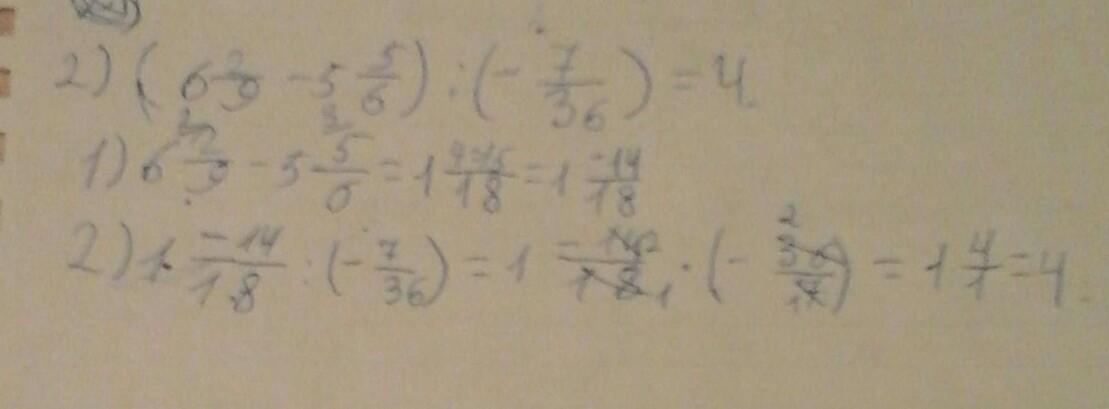 2) (6 2/9 - 5 5/6) : (- 7/36) = 4
1) 6 2/9 - 5 5/6 = 1 4-15/18 = 1 -14/18
2) 1 -14/18 : (- 7/36) = 1 -14/18 · (- 36/7) = 1 4/1 = 4